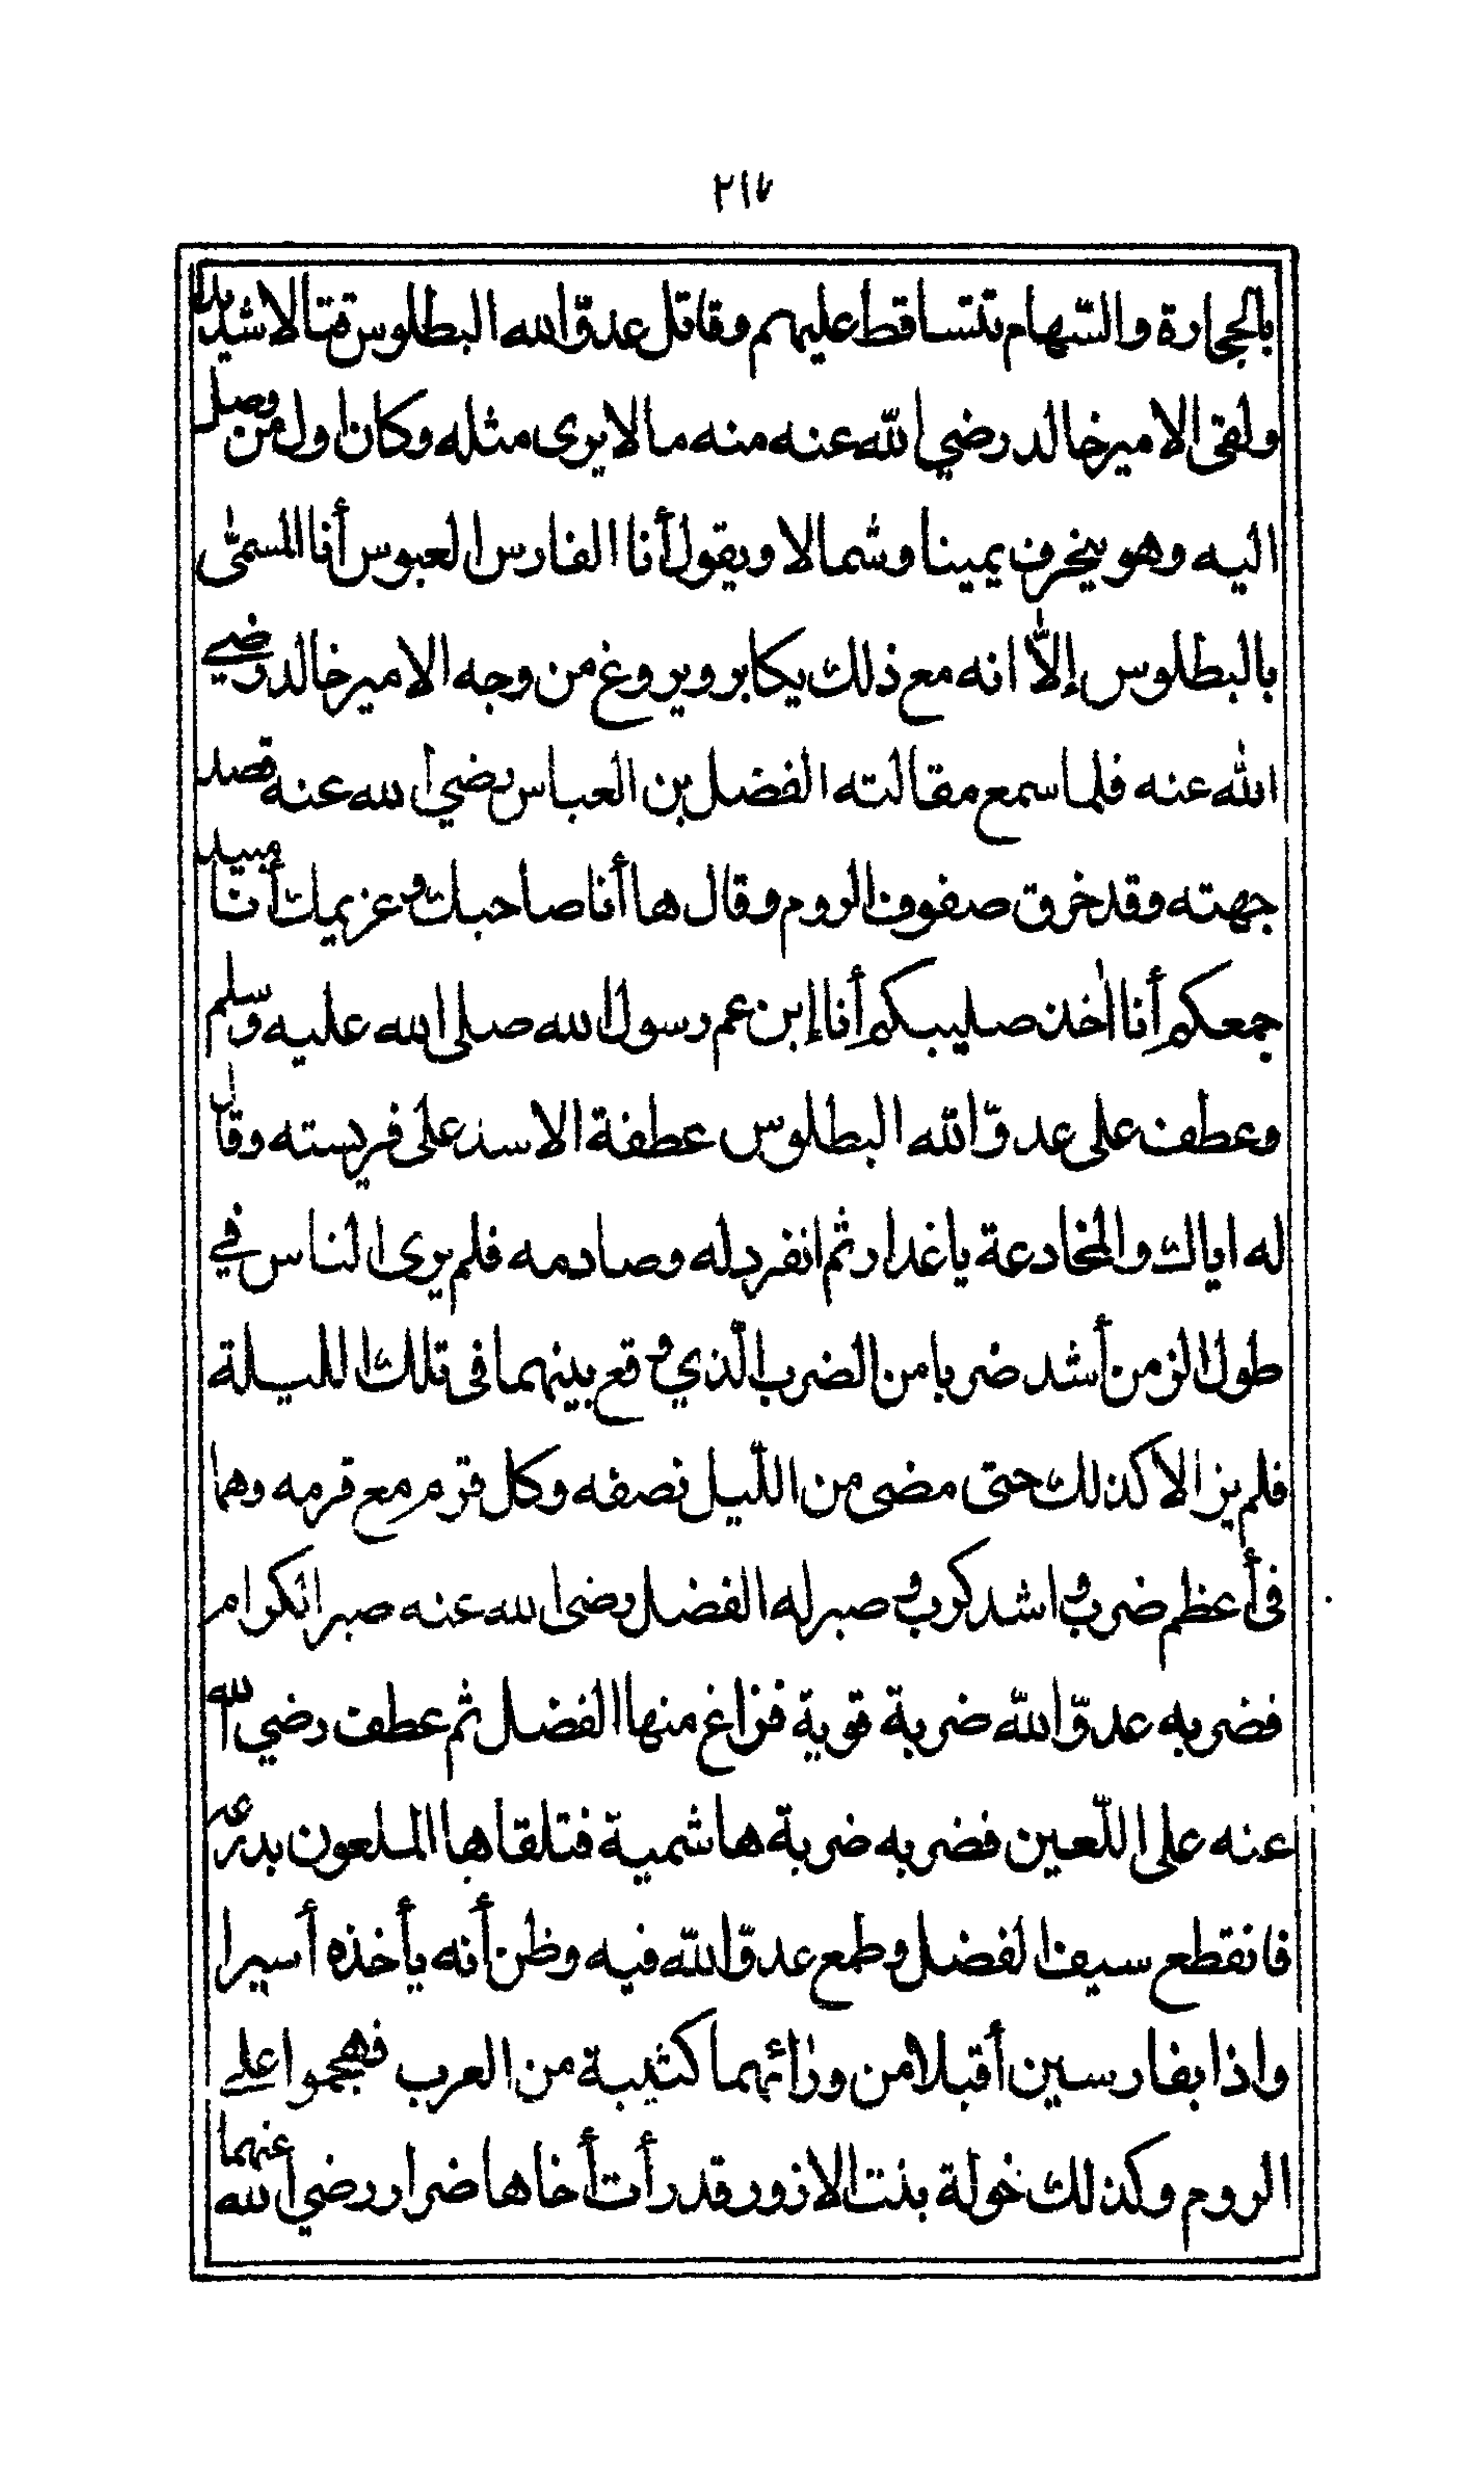 ٢١٧
بالحجارة والسّهام تتساقط عليهم وقاتل عدوّ الله البطلوس قتالا شديدا
ولقى الامير خالد رضي الله عنه منه مالا يرى مثله وكان اول من وصل
اليه وهو ينخرف يمينا وشمالا ويقول أنا الفارس العبوس أنا المسمّى
بالبطلوس إلاّ انه مع ذلك يكابر ويروغ من وجه الامير خالد رضي
الله عنه فلما سمع مقالته الفضل بن العباس رضي الله عنه قصد
جهته وقد خرق صفوف الروم وقال ها أنا صاحبك وعزيمك أنا مبيد
جمعكم أنا اٰخذ صليبكم أنا إبن عم رسول الله صلى الله عليه وسلم
وعطف على عدوّ الله البطلوس عطفة الاسد على فريسته وقال
له اياك والمخادعة يا غدار ثم انفرد له وصادمه فلم يرى الناس في
طول الزمن أشد ضربا من الضرب الّذي وقع بينهما فى تلك الليلة
فلم يزالا كذلك حتى مضى من اللّيل نصفه وكل قرم مع قرمه وهما
فى أعظم ضرب واشد كرب وصبر له الفضل رضى الله عنه صبر الكرام
فضربه عدوّ الله ضربة قوية فزاغ منها الفضل ثم عطف رضي الله
عنه على اللّعين فضربه ضربة هاشمية فتلقاها الملعون بدرعه
فانقطع سيف الفضل وطمع عدوّ الله فيه وظن أنه يأخذه أسيرا
واذا بفارسين أقبلا من ورائهما كتيبة من العرب فهجموا على
الروم وكذلك خولة بنت الازور قد رأت أخاها ضرار رضي الله عنهما